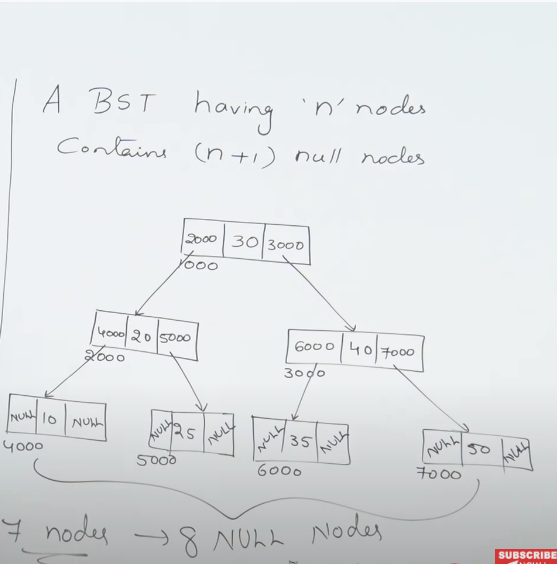 A BST having 'n' nodes
Contains (n+1) null nodes
2000 30 3000
1000
4000 20 5000
2000
6000 40 7000
3000
NULL 10 NULL
4000
NULL 25 NULL
5000
NULL 35 NULL
6000
NULL 50 NULL
7000
7 nodes → 8 NULL Nodes
SUBSCRIBE